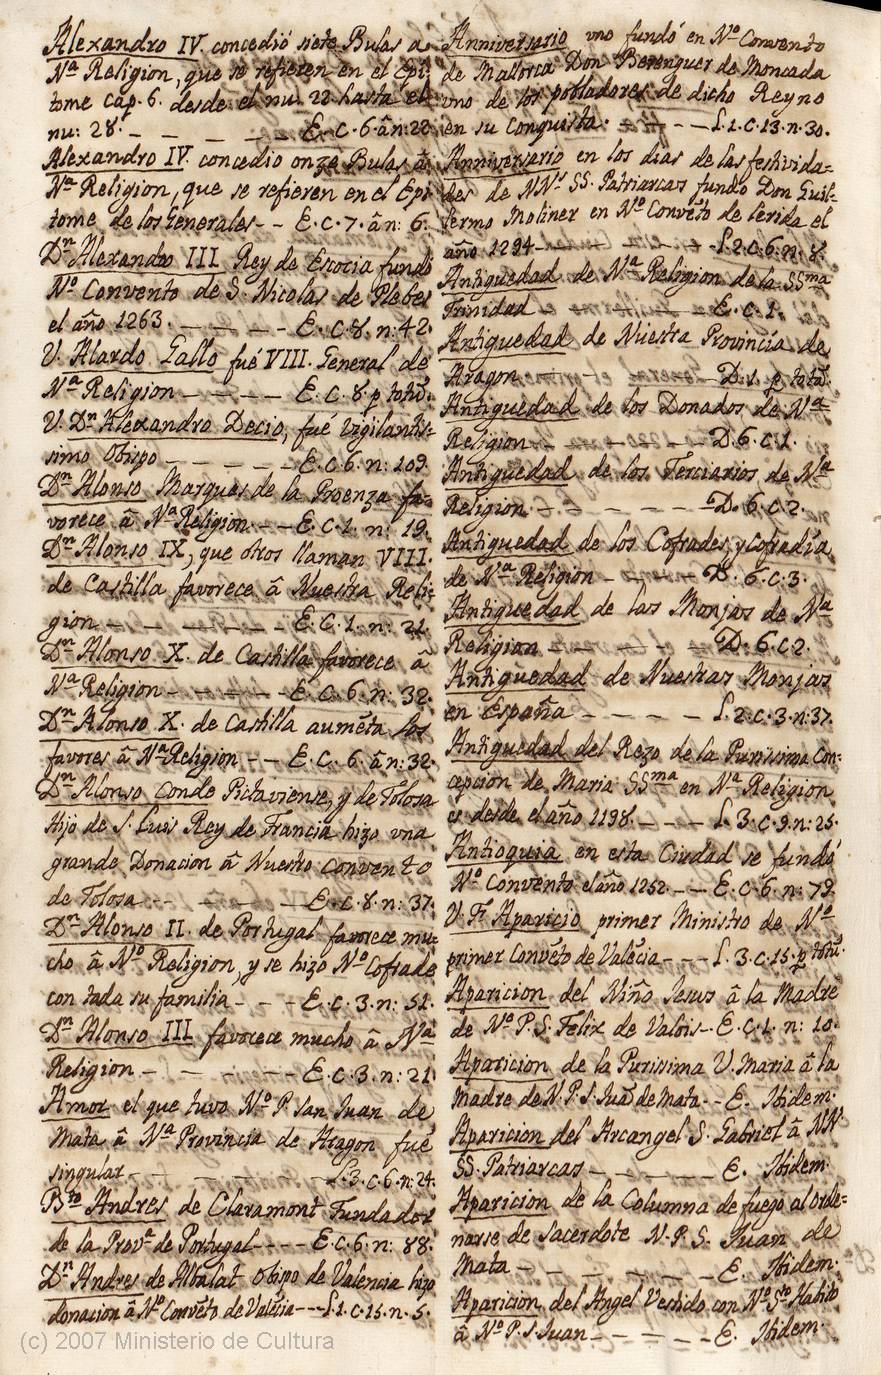 Alexandro IV. concedió siete Bulas a
Nª Religion, que se refieren en el Epi-
tome cap. 6. desde el nu. 22 hasta el
nu: 28. - - - - - E. C. 6. â n: 22.
Alexandro IV. concedio onze Bulas â
Nª Religion, que se refieren en el Epi-
tome de los Generales - - E. C. 7. â n: 6.
Dn. Alexandro III. Rey de Escocia fundó
Nº Convento de S. Nicolas de Plebes
el año 1263. - - - - E. C. 8. n: 42.
V. Alardo Gallo fué VIII. General de
Nª Religion - - - - E. C. 8. p totũ.
V. Dn. Alexandro Decio, fué vigilantis-
simo Obispo - - - - - E. C. 6. n: 109.
Dn. Alonso Marques de la Proenza fa-
vorece â Nª Religion - - E. C. 1. n: 19.
Dn. Alonso IX, que otros llaman VIII.
de Castilla favorece â Nuestra Reli-
gion - - - - - - E. C. 1. n: 21.
Dn. Alonso X. de Castilla favorece â
Nª Religion - - - - - E. C. 6. n: 32.
Dn. Alonso X. de Castilla aumẽta los
favores â Nª Religion - - E. C. 6. â n: 32.
Dn. Alonso Conde Pictaviense, y de Tolosa
Hijo de S. Luis Rey de Francia hizo vna
grande Donacion â Nuestro Convento
de Tolosa - - - - - E. C. 8. n: 37.
Dn. Alonso II. de Portugal favorece mu-
cho â Nª Religion, y se hizo Nº Cofrade
con toda su familia - - - E. C. 3. n: 51.
Dn. Alonso III favorece mucho â Nª
Religion - - - - - - E. C. 3. n: 21.
Amor el que tuvo Nº P. San Juan de
Mata â Nª Provincia de Aragon fue
singular - - - - - - L. 3. C. 6. n: 24.
Bto. Andres de Claramont Fundador
de la Provª de Portugal - - - - E. C. 6. n: 88.
Dn. Andres de Albalat Obispo de Valencia hizo
donacion â Nº Convẽto de Valẽcia - - - L. 1. C. 15. n. 5.
Anniversario vno fundó en Nº Convento
de Mallorca Don Berenguer de Moncada
vno de los pobladores de dicho Reyno
en su conquista. - - - L. 1. C. 13. n. 30.
Anniversario en los dias de las festivida-
des de NNs. SS. Patriarcas fundo Don Guil-
lermo Moliner en Nº Convẽto de Lerida el
año 1294 - - - - - L. 2. C. 6. n: 8.
Antiguedad de Nª Religion de la SSma
Trinidad - - - - - E. C. 1.
Antiguedad de Nuestra Provincia de
Aragon - - - - - D. 1. p totã.
Antiguedad de los Donados de Nª
Religion - - - - - D. 6. C. 1.
Antiguedad de los Terciarios de Nª
Religion - - - - - - D. 6. C. 2.
Antiguedad de los Cofrades, y Cofradía
de Nª Religion - - - - D. 6. C. 3.
Antiguedad de las Monjas de Nª
Religion - - - - - D. 6. C. 2.
Antiguedad de Nuestras Monjas
en España - - - - - L. 2. C. 3. n: 37.
Antiguedad del Rezo de la Purissima Con-
cepcion de Maria SSma en Nª Religion
es desde el año 1198. - - - L. 3. C. 9. n: 25.
Antioquia en esta Ciudad se fundó
Nº Convento el año 1252. - - E. C. 6. n: 79.
V. Fr. Aparicio primer Ministro de Nº
primer Convẽto de Valẽcia - - - L. 3. C. 15. p totũ.
Aparicion del Niño Jesus â la Madre
de Nº P. S. Felix de Valois - - E. C. 1. n: 10.
Aparicion de la Purissima V. Maria â la
Madre de N. P. S. Juã de Mata - - E. Ibidem.
Aparicion del Arcangel S. Gabriel â NN.
SS. Patriarcas - - - - - E. Ibidem.
Aparicion de la Columna de fuego al Orde-
narse de Sacerdote N. P. S. Juan de
Mata - - - - - - - E. Ibidem.
Aparicion del Angel Vestido con Nº Sto. Habito
â Nº P. S. Juan - - - - - E. Ibidem.
(c) 2007 Ministerio de Cultura